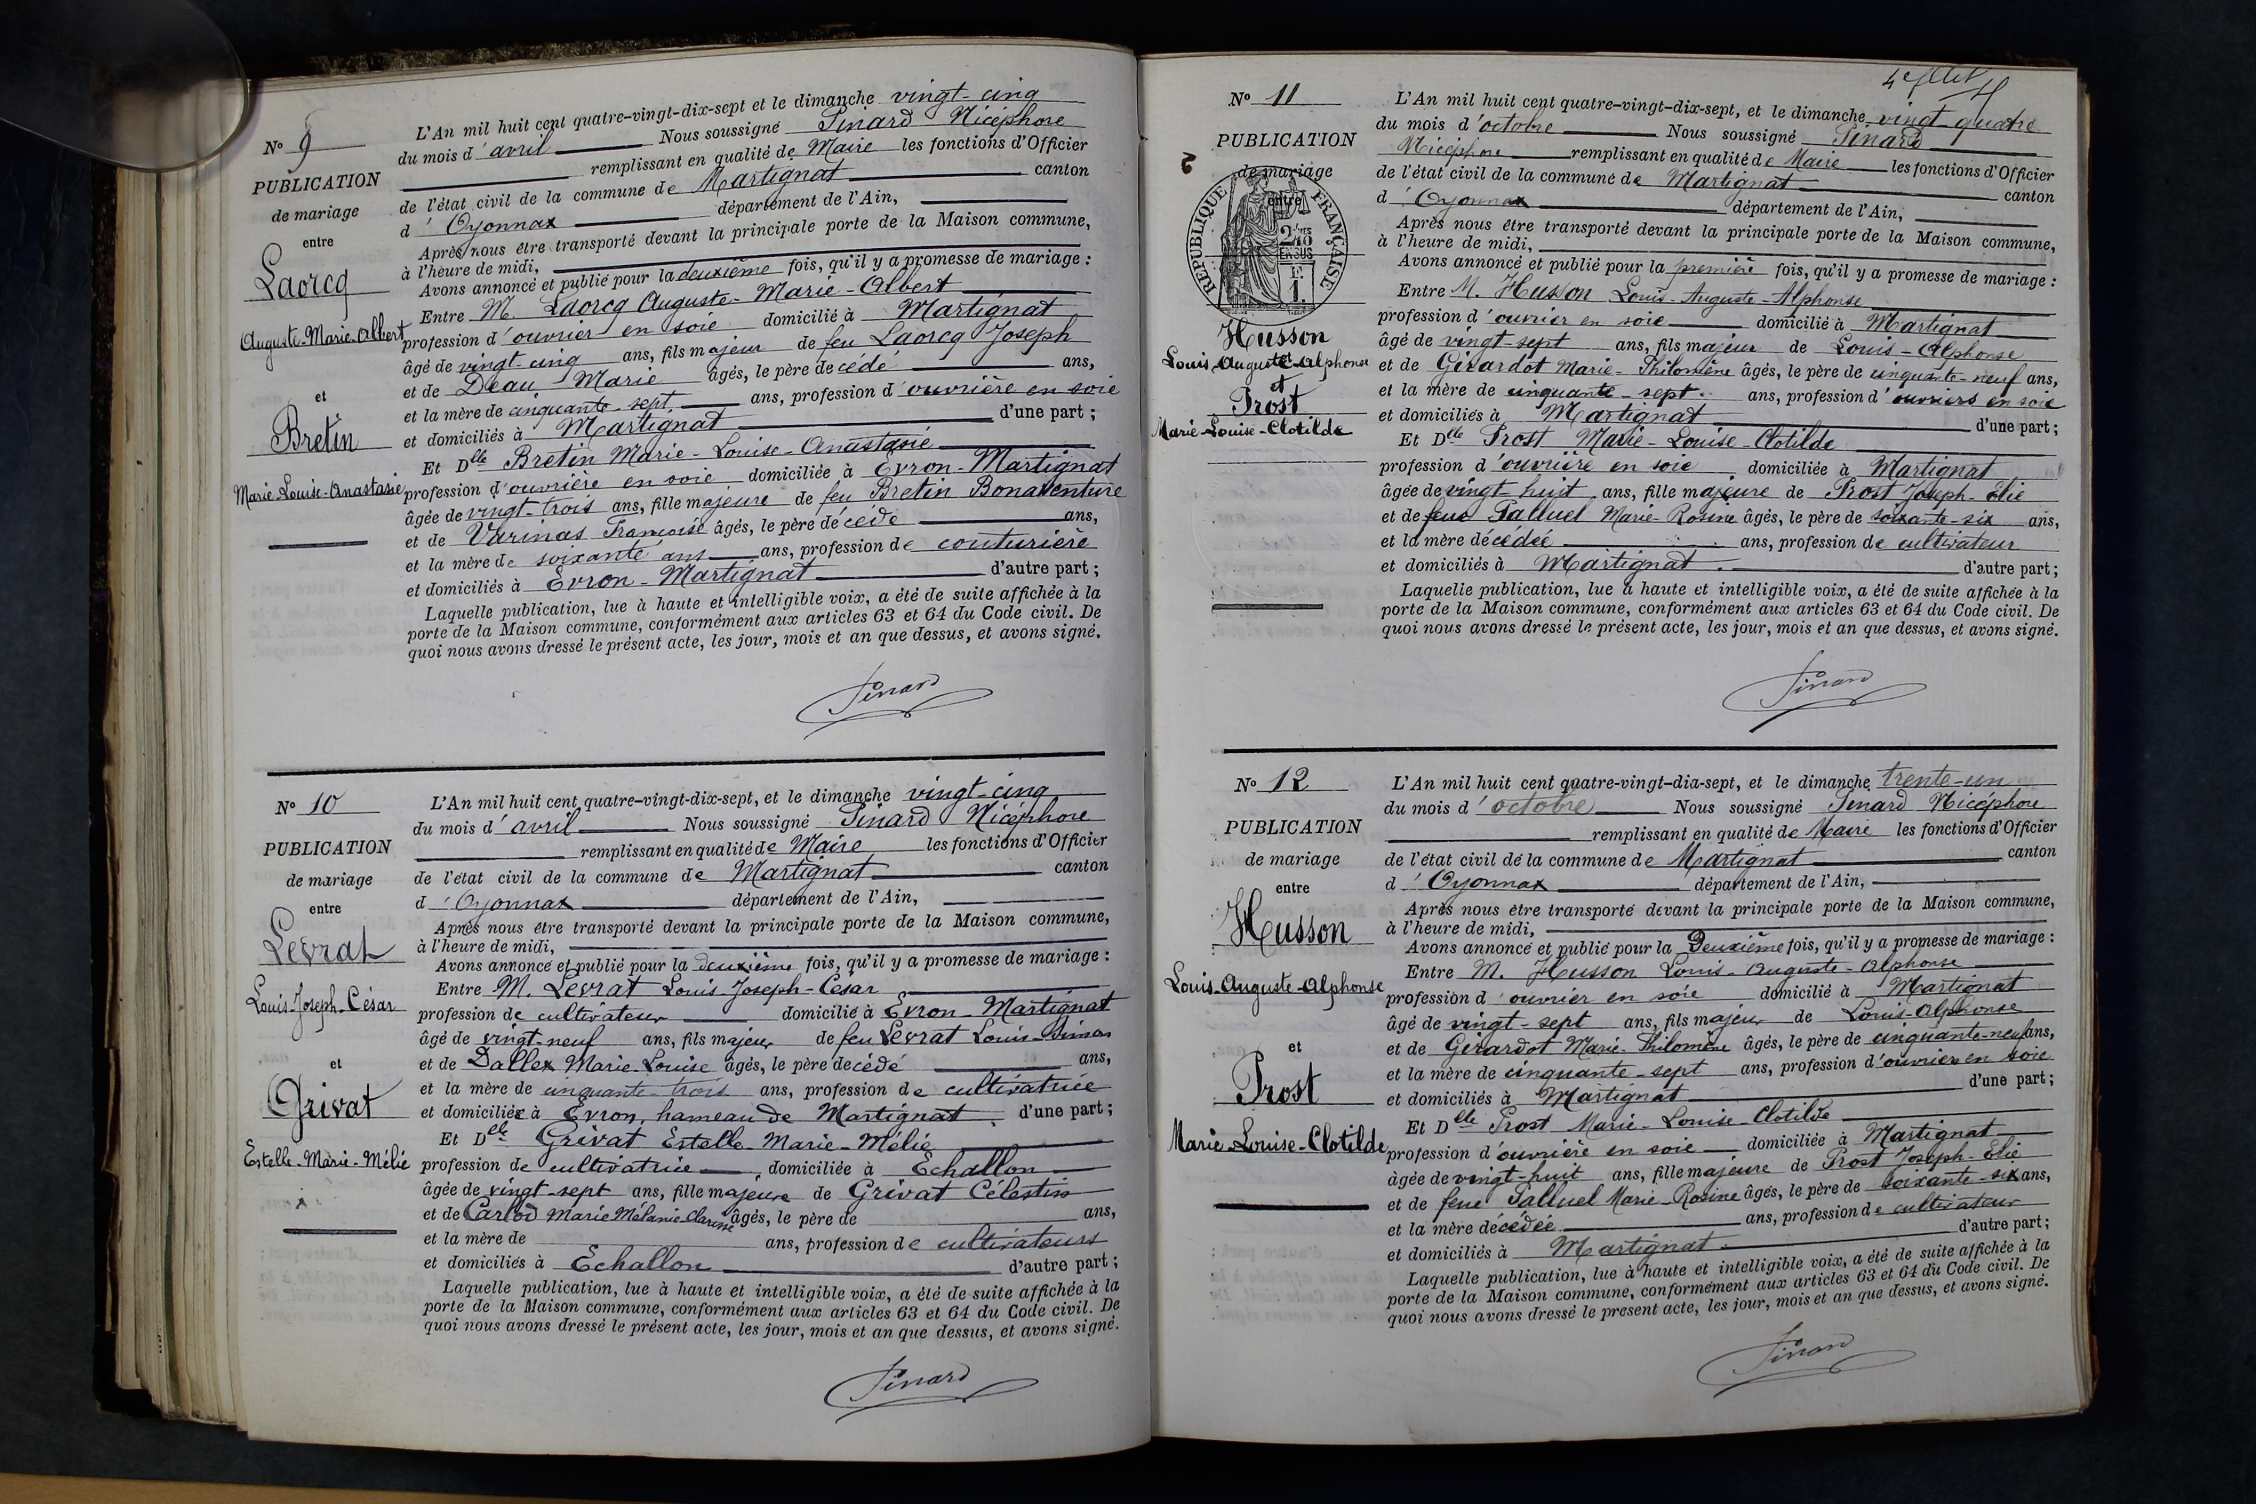 N° 9
PUBLICATION
de mariage
entre
Laorcq
Auguste-Marie-Albert
et
Bretin
Marie-Louise-Anastasie
L'An mil huit cent quatre-vingt-dix-sept et le dimanche vingt-cinq
du mois d'avril Nous soussigné Sinard Nicéphore
remplissant en qualité de Maire les fonctions d'Officier
de l'état civil de la commune de Martignat canton
d'Oyonnax département de l'Ain,
Après nous être transporté devant la principale porte de la Maison commune,
à l'heure de midi,
Avons annoncé et publié pour la deuxième fois, qu'il y a promesse de mariage :
Entre M. Laorcq Auguste-Marie-Albert
profession d'ouvrier en soie domicilié à Martignat
âgé de vingt-cinq ans, fils majeur de feu Laorcq Joseph
et de Deau Marie âgés, le père décédé ans,
et la mère de cinquante-sept ans, profession d'ouvrière en soie
et domiciliés à Martignat d'une part ;
Et Dlle Bretin Marie-Louise-Anastasie
profession d'ouvrière en soie domiciliée à Evron-Martignat
âgée de vingt-trois ans, fille majeure de feu Bretin Bonaventure
et de Varinas Françoise âgés, le père décédé ans,
et la mère de soixante ans ans, profession de couturière
et domiciliés à Evron-Martignat d'autre part ;
Laquelle publication, lue à haute et intelligible voix, a été de suite affichée à la
porte de la Maison commune, conformément aux articles 63 et 64 du Code civil. De
quoi nous avons dressé le présent acte, les jour, mois et an que dessus, et avons signé.
Sinard
N° 10
PUBLICATION
de mariage
entre
Levrat
Louis-Joseph-César
et
Grivat
Estelle-Marie-Mélie
L'An mil huit cent quatre-vingt-dix-sept, et le dimanche vingt-cinq
du mois d'avril Nous soussigné Sinard Nicéphore
remplissant en qualité de Maire les fonctions d'Officier
de l'état civil de la commune de Martignat canton
d'Oyonnax département de l'Ain,
Après nous être transporté devant la principale porte de la Maison commune,
à l'heure de midi,
Avons annoncé et publié pour la deuxième fois, qu'il y a promesse de mariage :
Entre M. Levrat Louis-Joseph-César
profession de cultivateur domicilié à Evron-Martignat
âgé de vingt-neuf ans, fils majeur de feu Levrat Louis-Simon
et de Dallex Marie-Louise âgés, le père décédé ans,
et la mère de cinquante-trois ans, profession de cultivatrice
et domiciliée à Evron, hameau de Martignat d'une part ;
Et Dlle Grivat Estelle-Marie-Mélie
profession de cultivatrice domiciliée à Echallon
âgée de vingt-sept ans, fille majeure de Grivat Célestin
et de Carlod Marie Mélanie Clarisse âgés, le père de ans,
et la mère de ans, profession de cultivateurs
et domiciliés à Echallon d'autre part ;
Laquelle publication, lue à haute et intelligible voix, a été de suite affichée à la
porte de la Maison commune, conformément aux articles 63 et 64 du Code civil. De
quoi nous avons dressé le présent acte, les jour, mois et an que dessus, et avons signé.
Sinard
N° 11
PUBLICATION
de mariage
entre
RÉPUBLIQUE FRANÇAISE
2/10 EN SUS
1F
Husson
Louis-Auguste-Alphonse
et
Prost
Marie-Louise-Clotilde
L'An mil huit cent quatre-vingt-dix-sept, et le dimanche vingt-quatre
du mois d'octobre Nous soussigné Sinard
Nicéphore remplissant en qualité de Maire les fonctions d'Officier
de l'état civil de la commune de Martignat canton
d'Oyonnax département de l'Ain,
Après nous être transporté devant la principale porte de la Maison commune,
à l'heure de midi,
Avons annoncé et publié pour la première fois, qu'il y a promesse de mariage :
Entre M. Husson Louis-Auguste-Alphonse
profession d'ouvrier en soie domicilié à Martignat
âgé de vingt-sept ans, fils majeur de Louis-Alphonse
et de Girardot Marie-Philomène âgés, le père de cinquante-neuf ans,
et la mère de cinquante-sept ans, profession d'ouvriers en soie
et domiciliés à Martignat d'une part ;
Et Dlle Prost Marie-Louise-Clotilde
profession d'ouvrière en soie domiciliée à Martignat
âgée de vingt-huit ans, fille majeure de Prost Joseph-Elie
et de feue Palluel Marie-Rosine âgés, le père de soixante-six ans,
et la mère décédée ans, profession de cultivateur
et domiciliés à Martignat d'autre part ;
Laquelle publication, lue à haute et intelligible voix, a été de suite affichée à la
porte de la Maison commune, conformément aux articles 63 et 64 du Code civil. De
quoi nous avons dressé le présent acte, les jour, mois et an que dessus, et avons signé.
Sinard
N° 12
PUBLICATION
de mariage
entre
Husson
Louis-Auguste-Alphonse
et
Prost
Marie-Louise-Clotilde
L'An mil huit cent quatre-vingt-dia-sept, et le dimanche trente-un
du mois d'octobre Nous soussigné Sinard Nicéphore
remplissant en qualité de Maire les fonctions d'Officier
de l'état civil de la commune de Martignat canton
d'Oyonnax département de l'Ain,
Après nous être transporté devant la principale porte de la Maison commune,
à l'heure de midi,
Avons annoncé et publié pour la Deuxième fois, qu'il y a promesse de mariage :
Entre M. Husson Louis-Auguste-Alphonse
profession d'ouvrier en soie domicilié à Martignat
âgé de vingt-sept ans, fils majeur de Louis-Alphonse
et de Girardot Marie-Philomène âgés, le père de cinquante-neuf ans,
et la mère de cinquante-sept ans, profession d'ouvriers en soie
et domiciliés à Martignat d'une part ;
Et Dlle Prost Marie-Louise-Clotilde
profession d'ouvrière en soie domiciliée à Martignat
âgée de vingt-huit ans, fille majeure de Prost Joseph-Elie
et de feue Palluel Marie-Rosine âgés, le père de soixante-six ans,
et la mère décédée ans, profession de cultivateur
et domiciliés à Martignat d'autre part ;
Laquelle publication, lue à haute et intelligible voix, a été de suite affichée à la
porte de la Maison commune, conformément aux articles 63 et 64 du Code civil. De
quoi nous avons dressé le présent acte, les jour, mois et an que dessus, et avons signé.
Sinard